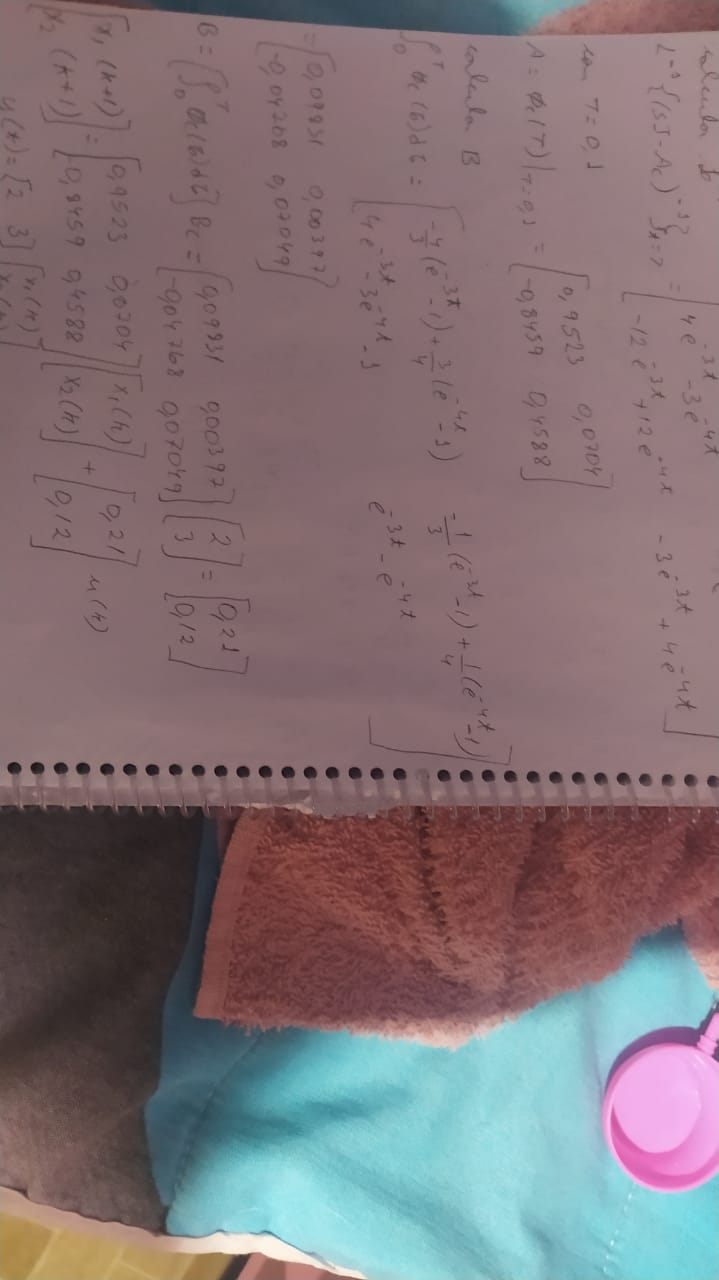 calcula
4e^-3t - 3e^-4t
L^-1{(sI-Ac)^-1}t=T =
-12e^-3t + 12e^-4t   -3e^-3t + 4e^-4t
con T=0,1
A = Φc(T)|T=0,1 = [0,9523   0,0704
-0,8459   0,4588]
calcula B
∫0^T Φc(τ)dτ = [-4/3(e^-3t-1)+3/4(e^-4t-1)   -1/3(e^-3t-1)+1/4(e^-4t-1)
4e^-3t-3e^-4t-1   e^-3t-e^-4t]
=[0,09831   0,00397
-0,04768   0,07049]
B=[∫0^T Φc(τ)dτ]Bc = [0,09831   0,00397
-0,04768   0,07049] [2
3] = [0,21
0,12]
[x1(k+1)
x2(k+1)] = [0,9523   0,0704
-0,8459   0,4588] [x1(k)
x2(k)] + [0,21
0,12] u(k)
y(k)=[2   3][x1(k)